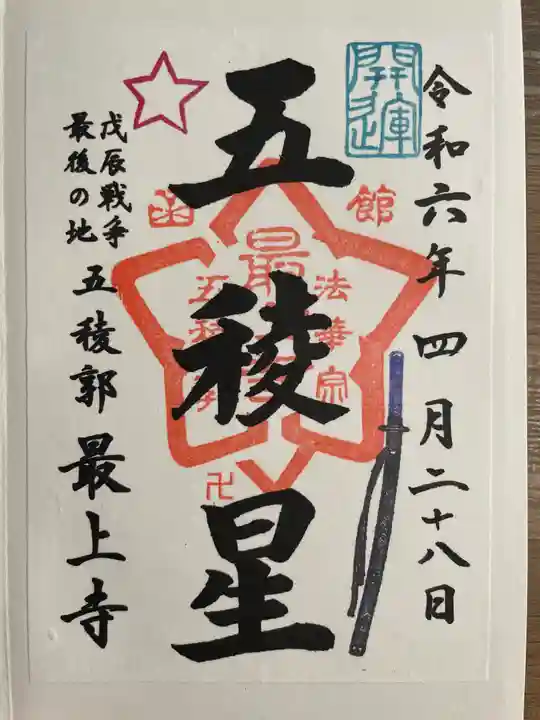 令和六年四月二十八日
開運
五稜星
函館
法華宗
最
五稜
戊辰戦争
最後の地
五稜郭最上寺
卍